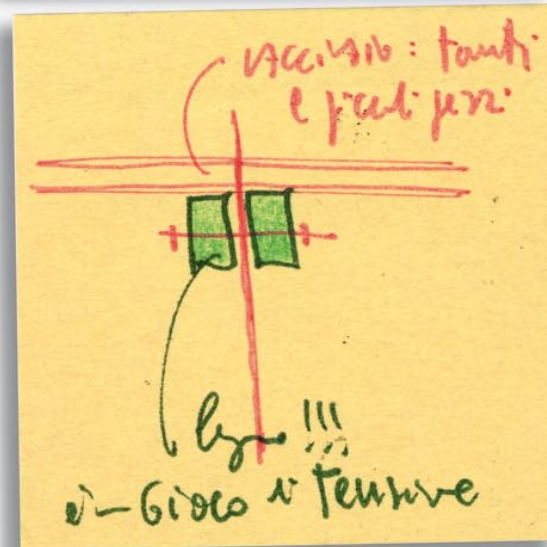 l'Acciaio: tanti
e piccoli pezzi
legno!!!
è un Gioco di Tensione